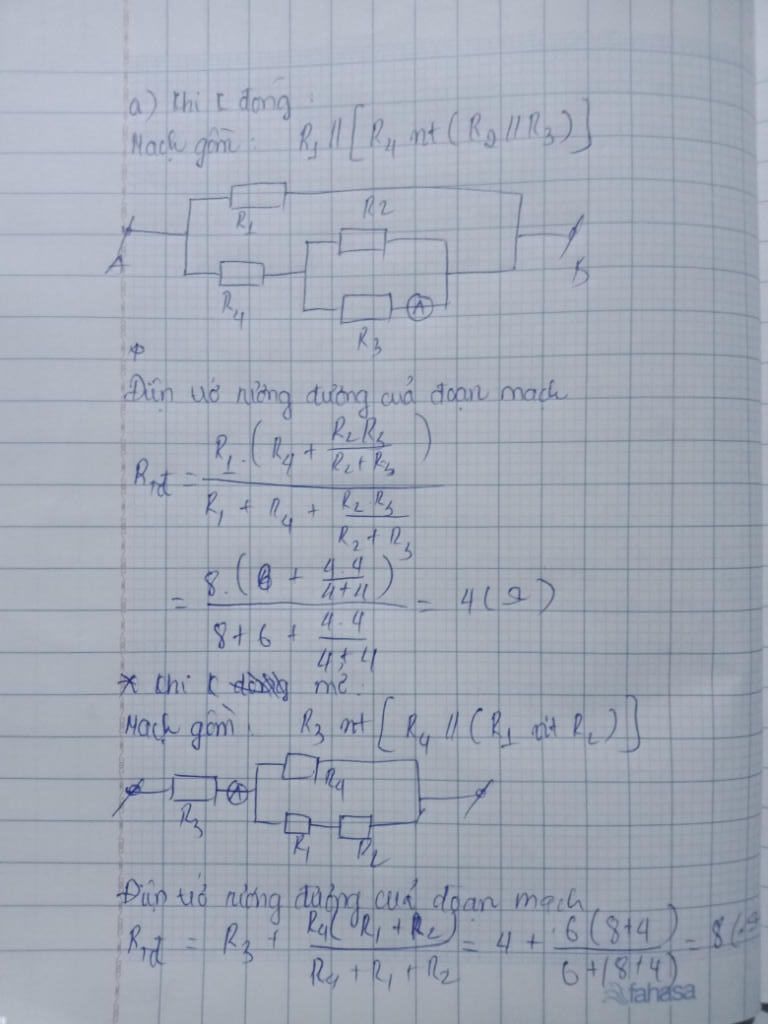 a) Khi K đóng:
Mạch gồm: R1 // [R4 nt (R2 // R3)]
R1
R2
A
B
R4
A
R3
Điện trở tương đương của đoạn mạch
Rtđ = R1.(R4 + R2R3/(R2+R3)) / (R1 + R4 + R2.R3/(R2+R3))
= 8.(6 + 4.4/(4+4)) / (8+6+4.4/(4+4)) = 4(Ω)
* Khi K mở:
Mạch gồm: R3 nt [R4 // (R1 nt R2)]
R4
A
R3
R1
R2
Điện trở tương đương của đoạn mạch
Rtđ = R3 + R4(R1+R2)/(R4+R1+R2) = 4 + 6(8+4)/(6+(8+4)) = 8(Ω
fahasa